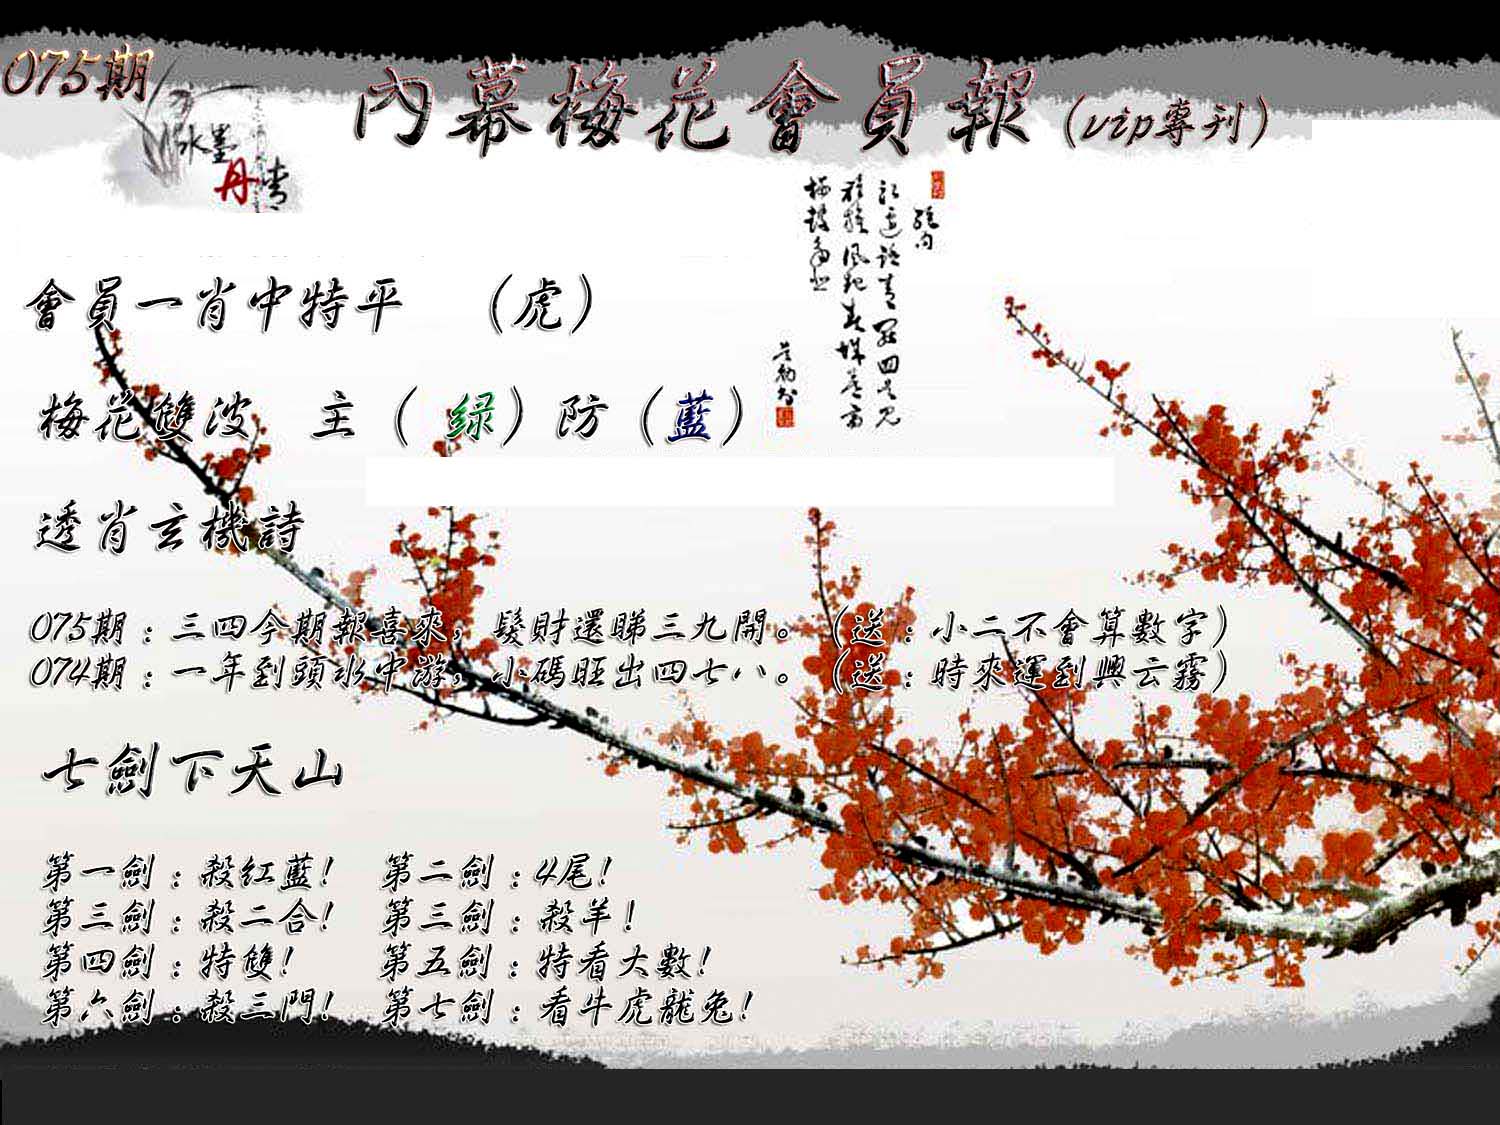 075期
內幕梅花會員報(vip專刊)
水墨
丹青
會員一肖中特平 (虎)
梅花雙波 主(绿)防(藍)
透肖玄機詩
075期:三四今期報喜來,髮財還睇三九開。(送:小二不會算數字)
074期:一年到頭水中游,小碼旺出四七八。(送:時來運到興云霧)
七劍下天山
第一劍:殺紅藍! 第二劍:4尾!
第三劍:殺二合! 第三劍:殺羊!
第四劍:特雙! 第五劍:特看大數!
第六劍:殺三門! 第七劍:看牛虎龍兔!